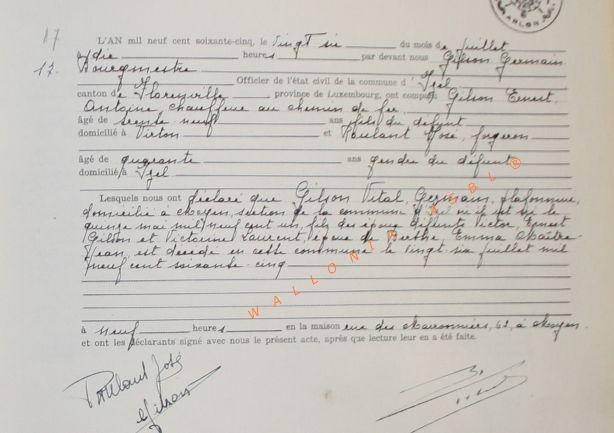 ARLON
17
L'AN mil neuf cent soixante-cinq, le vingt six du mois de juillet
à dix heures par devant nous Gilson Germain
17. Bourgmestre
Officier de l'état civil de la commune d' Izel
canton de Florenville province de Luxembourg, ont comparu Gilson Ernest
Antoine, chauffeur au chemin de fer
âgé de trente neuf ans fils du défunt
domicilié à Virton et Roulant José, forgeron
âgé de quarante ans gendre du défunt
domicilié à Izel
Lesquels nous ont déclaré que Gilson Vital, Germain, plafonneur,
domicilié à Moyen, section de la commune d'Izel où il est né le
quinze mai mil neuf cent un, fils des époux défunts Victor, Ernest
Gilson et Victorine Laurent, époux de Berthe Emma Maître
Jean, est décédé en cette commune le vingt six juillet mil
neuf cent soixante-cinq
WALLONIA ASBL ®
à neuf heures en la maison rue des Marronniers, 62, à Moyen
et ont les déclarants signé avec nous le présent acte, après que lecture leur en a été faite.
José
Gilson